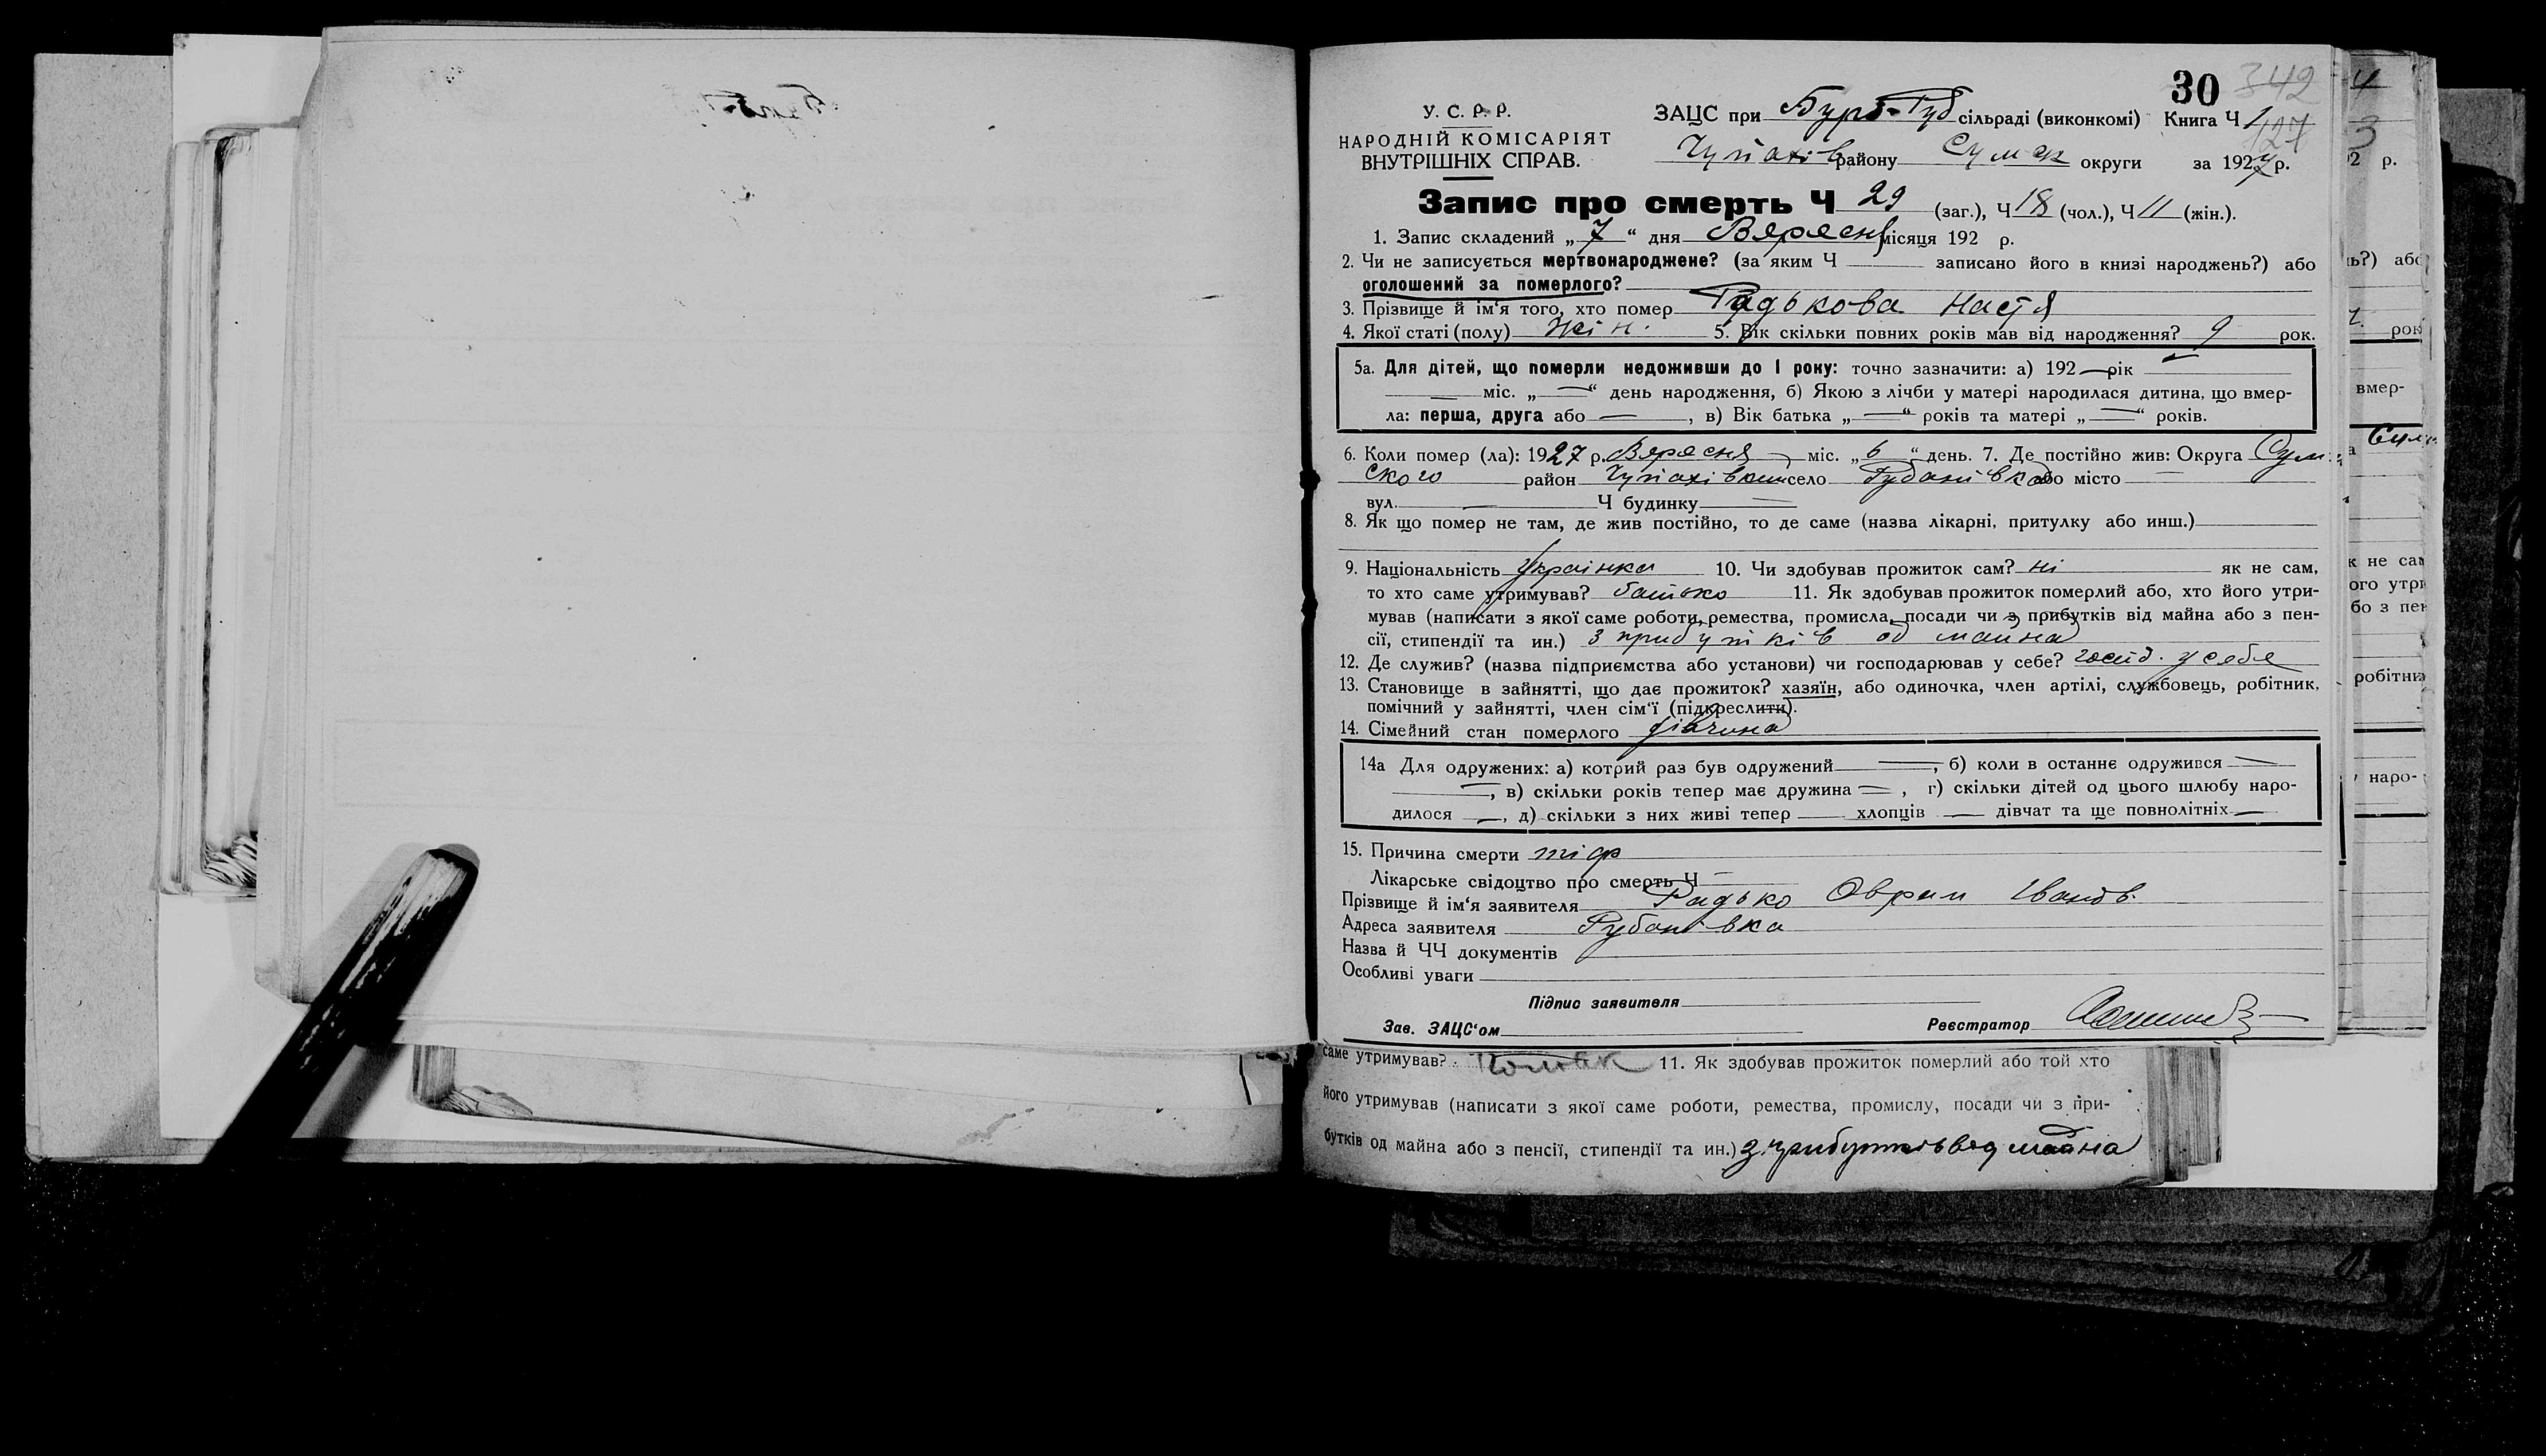 30 342
У. С. Р. Р.
НАРОДНІЙ КОМІСАРІЯТ
ВНУТРІШНІХ СПРАВ.
ЗАЦС при Бурб-Руб сільраді (виконкомі) Книга Ч 1
127
Чупахів району Сумск округи за 1927 р.
Запис про смерть Ч 29 (заг.), Ч 18 (чол.), Ч 11 (жін.).
1. Запис складений „ 7 “ дня Вересня місяця 192 р.
2. Чи не записується мертвонароджене? (за яким Ч записано його в книзі народжень?) або
оголошений за померлого?
3. Прізвище й ім‘я того, хто помер Радькова Настя
4. Якої статі (полу) жін. 5. Вік скільки повних років мав від народження? 9 рок.
5а. Для дітей, що померли недоживши до 1 року: точно зазначити: а) 192 — рік —
— міс. „ — “ день народження, б) Якою з лічби у матері народилася дитина, що вмер-
ла: перша, друга або —, в) Вік батька „ — “ років та матері „ — “ років.
6. Коли помер (ла): 1927 р. Вересня міс. „ 6 “ день. 7. Де постійно жив: Округа Сум
ского район Чупахівськ село Рубанівка або місто —
вул. — Ч будинку —
8. Як що помер не там, де жив постійно, то де саме (назва лікарні, притулку або инш.)
9. Національність українка 10. Чи здобував прожиток сам? ні як не сам,
то хто саме утримував? батько 11. Як здобував прожиток померлий або, хто його утри-
мував (написати з якої саме роботи, ремества, промисла, посади чи з прибутків від майна або з пен-
сії, стипендії та ин.) з прибутків од майна
12. Де служив? (назва підприємства або установи) чи господарював у себе? госпд. у себе
13. Становище в зайнятті, що дає прожиток? хазяїн, або одиночка, член артілі, службовець, робітник,
помічний у зайнятті, член сім‘ї (підкреслити).
14. Сімейний стан померлого дівчина
14а Для одружених: а) котрий раз був одружений —, б) коли в останнє одружився —
—, в) скільки років тепер має дружина —, г) скільки дітей од цього шлюбу наро-
дилося —, д) скільки з них живі тепер — хлопців — дівчат та ще повнолітніх —
15. Причина смерти тіф
Лікарське свідоцтво про смерть Ч —
Прізвище й ім‘я заявителя Радько Оврам Іванов.
Адреса заявителя Рубанівка
Назва й ЧЧ документів
Особливі уваги
Підпис заявителя
Зав. ЗАЦС‘ом Реєстратор
саме утримував? 11. Як здобував прожиток померлий або той хто
його утримував (написати з якої саме роботи, ремества, промислу, посади чи з при-
бутків од майна або з пенсії, стипендії та ин.) з прибутків від майна
3
2 р.
ь?) або
рок
вмер-
к не сам
ого утри
бо з пен
робітни
наро-